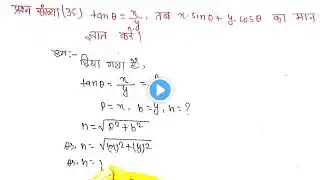 प्रश्न संख्या (35.) tanθ = x/y, तब x·sinθ + y·cosθ का मान
ज्ञात करें।
हल:-
दिया गया है,
tanθ = x/y =
P = x, b = y, h = ?
h = √P² + b²
or, h = √(x)² + (y)²
or, h =